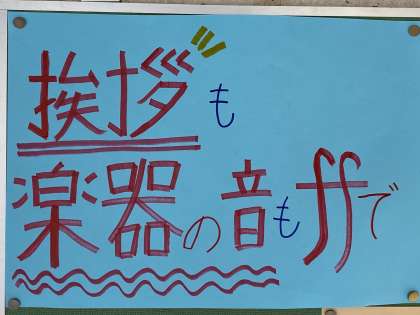 挨拶も
楽器の音もffで